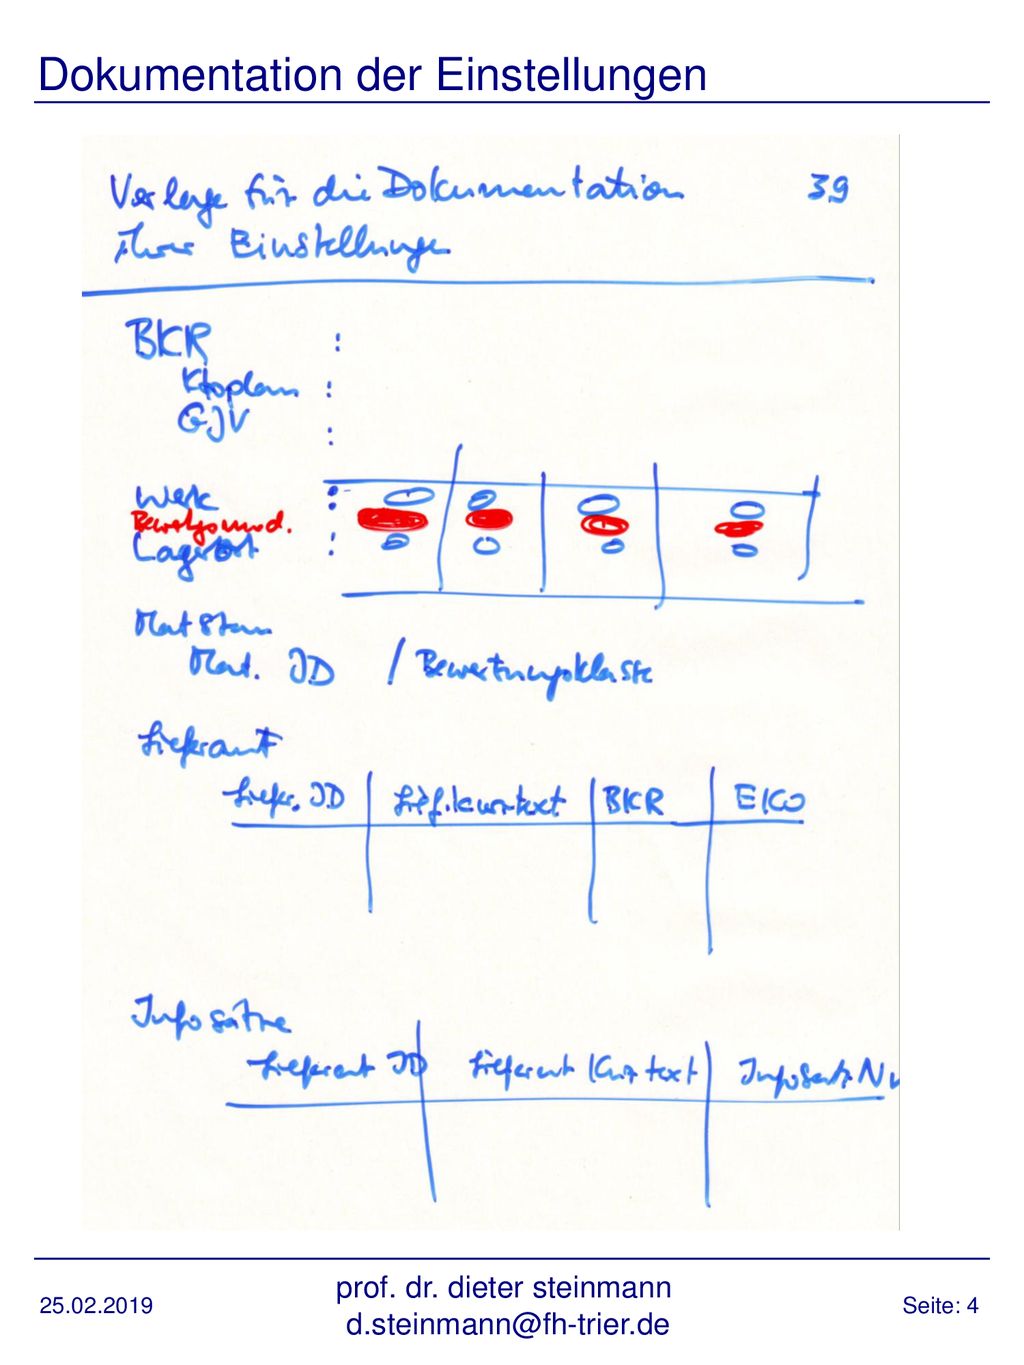 Dokumentation der Einstellungen
Vorlage für die Dokumentation 39
Ihrer Einstellungen
BKR :
Ktoplan :
GJV :
Werk :
Lagerort :
MatStam
Mat. ID / Bewertungsklasse
Lieferant
Liefer. ID Lief.kurztext BKR EKO
Infosätze
Lieferant ID Lieferant Kurztext Infosatz Nu
25.02.2019
prof. dr. dieter steinmann
d.steinmann@fh-trier.de
Seite: 4